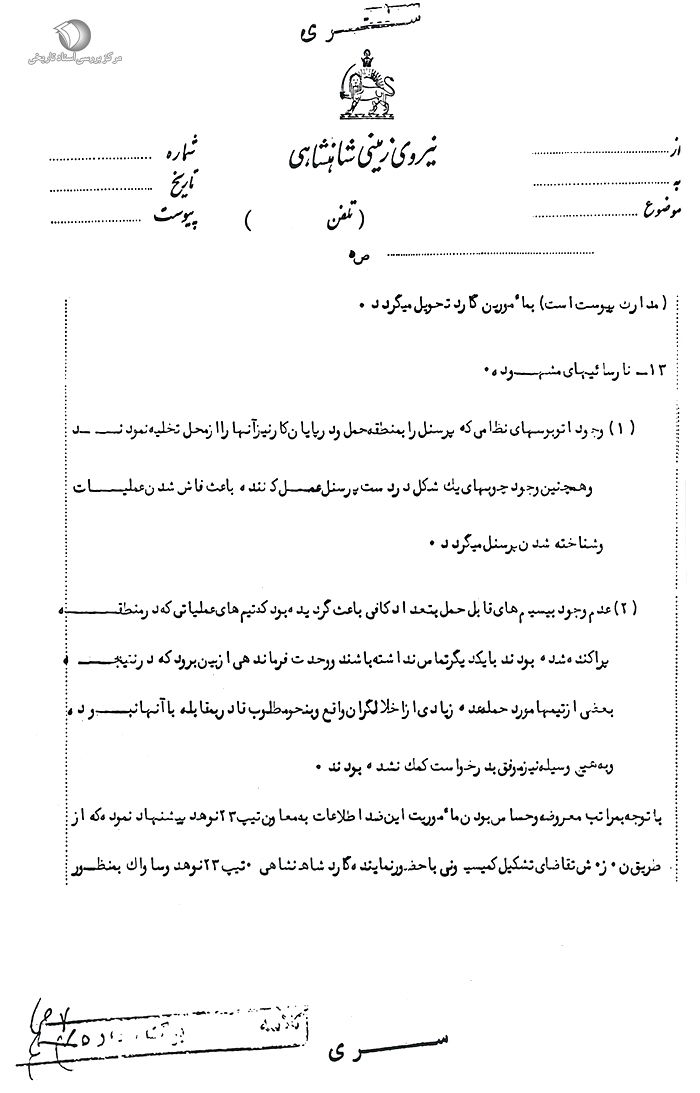 سری
مرکز بررسی اسناد تاریخی
نیروی زمینی شاهنشاهی
از
به
موضوع
شماره
تاریخ
پیوست
( تلفن )
ص ه
(مدارک پیوست است) بمأمورین گارد تحویل میگردد .
۱۳ـ نارسائیهای مشهوده .
(۱) وجود اتوبوسهای نظامی که پرسنل را بمنطقه حمل ودرپایان کارنیزآنها را ازمحل تخلیه نمودند
وهمچنین وجود چوبهای یک شکل دردست پرسنل عمل کننده باعث فاش شدن عملیات
وشناخته شدن پرسنل میگردد .
(۲) عدم وجود بیسیم های قابل حمل بتعداد کافی باعث گردیده بود که تیم های عملیاتی که درمنطقه
پراکنده شده بودند بایکدیگرتماس نداشته باشند ووحدت فرماندهی ازبین برود که درنتیجه
بعضی ازتیمها مورد حمله عده زیادی ازاخلالگران واقع وبنحومطلوب قادربمقابله باآنها نبوده
وبه همین وسیله نیزموفق بدرخواست کمک نشده بودند .
باتوجه بمراتب معروضه وحساس بودن مأموریت این ضداطلاعات به معاون تیپ ۲۳ نوهد پیشنهاد نموده که از
طریق ن . ز . ش تقاضای تشکیل کمیسیونی باحضورنماینده گارد شاهنشاهی . تیپ ۲۳ نوهد وساواک بمنظور
سری